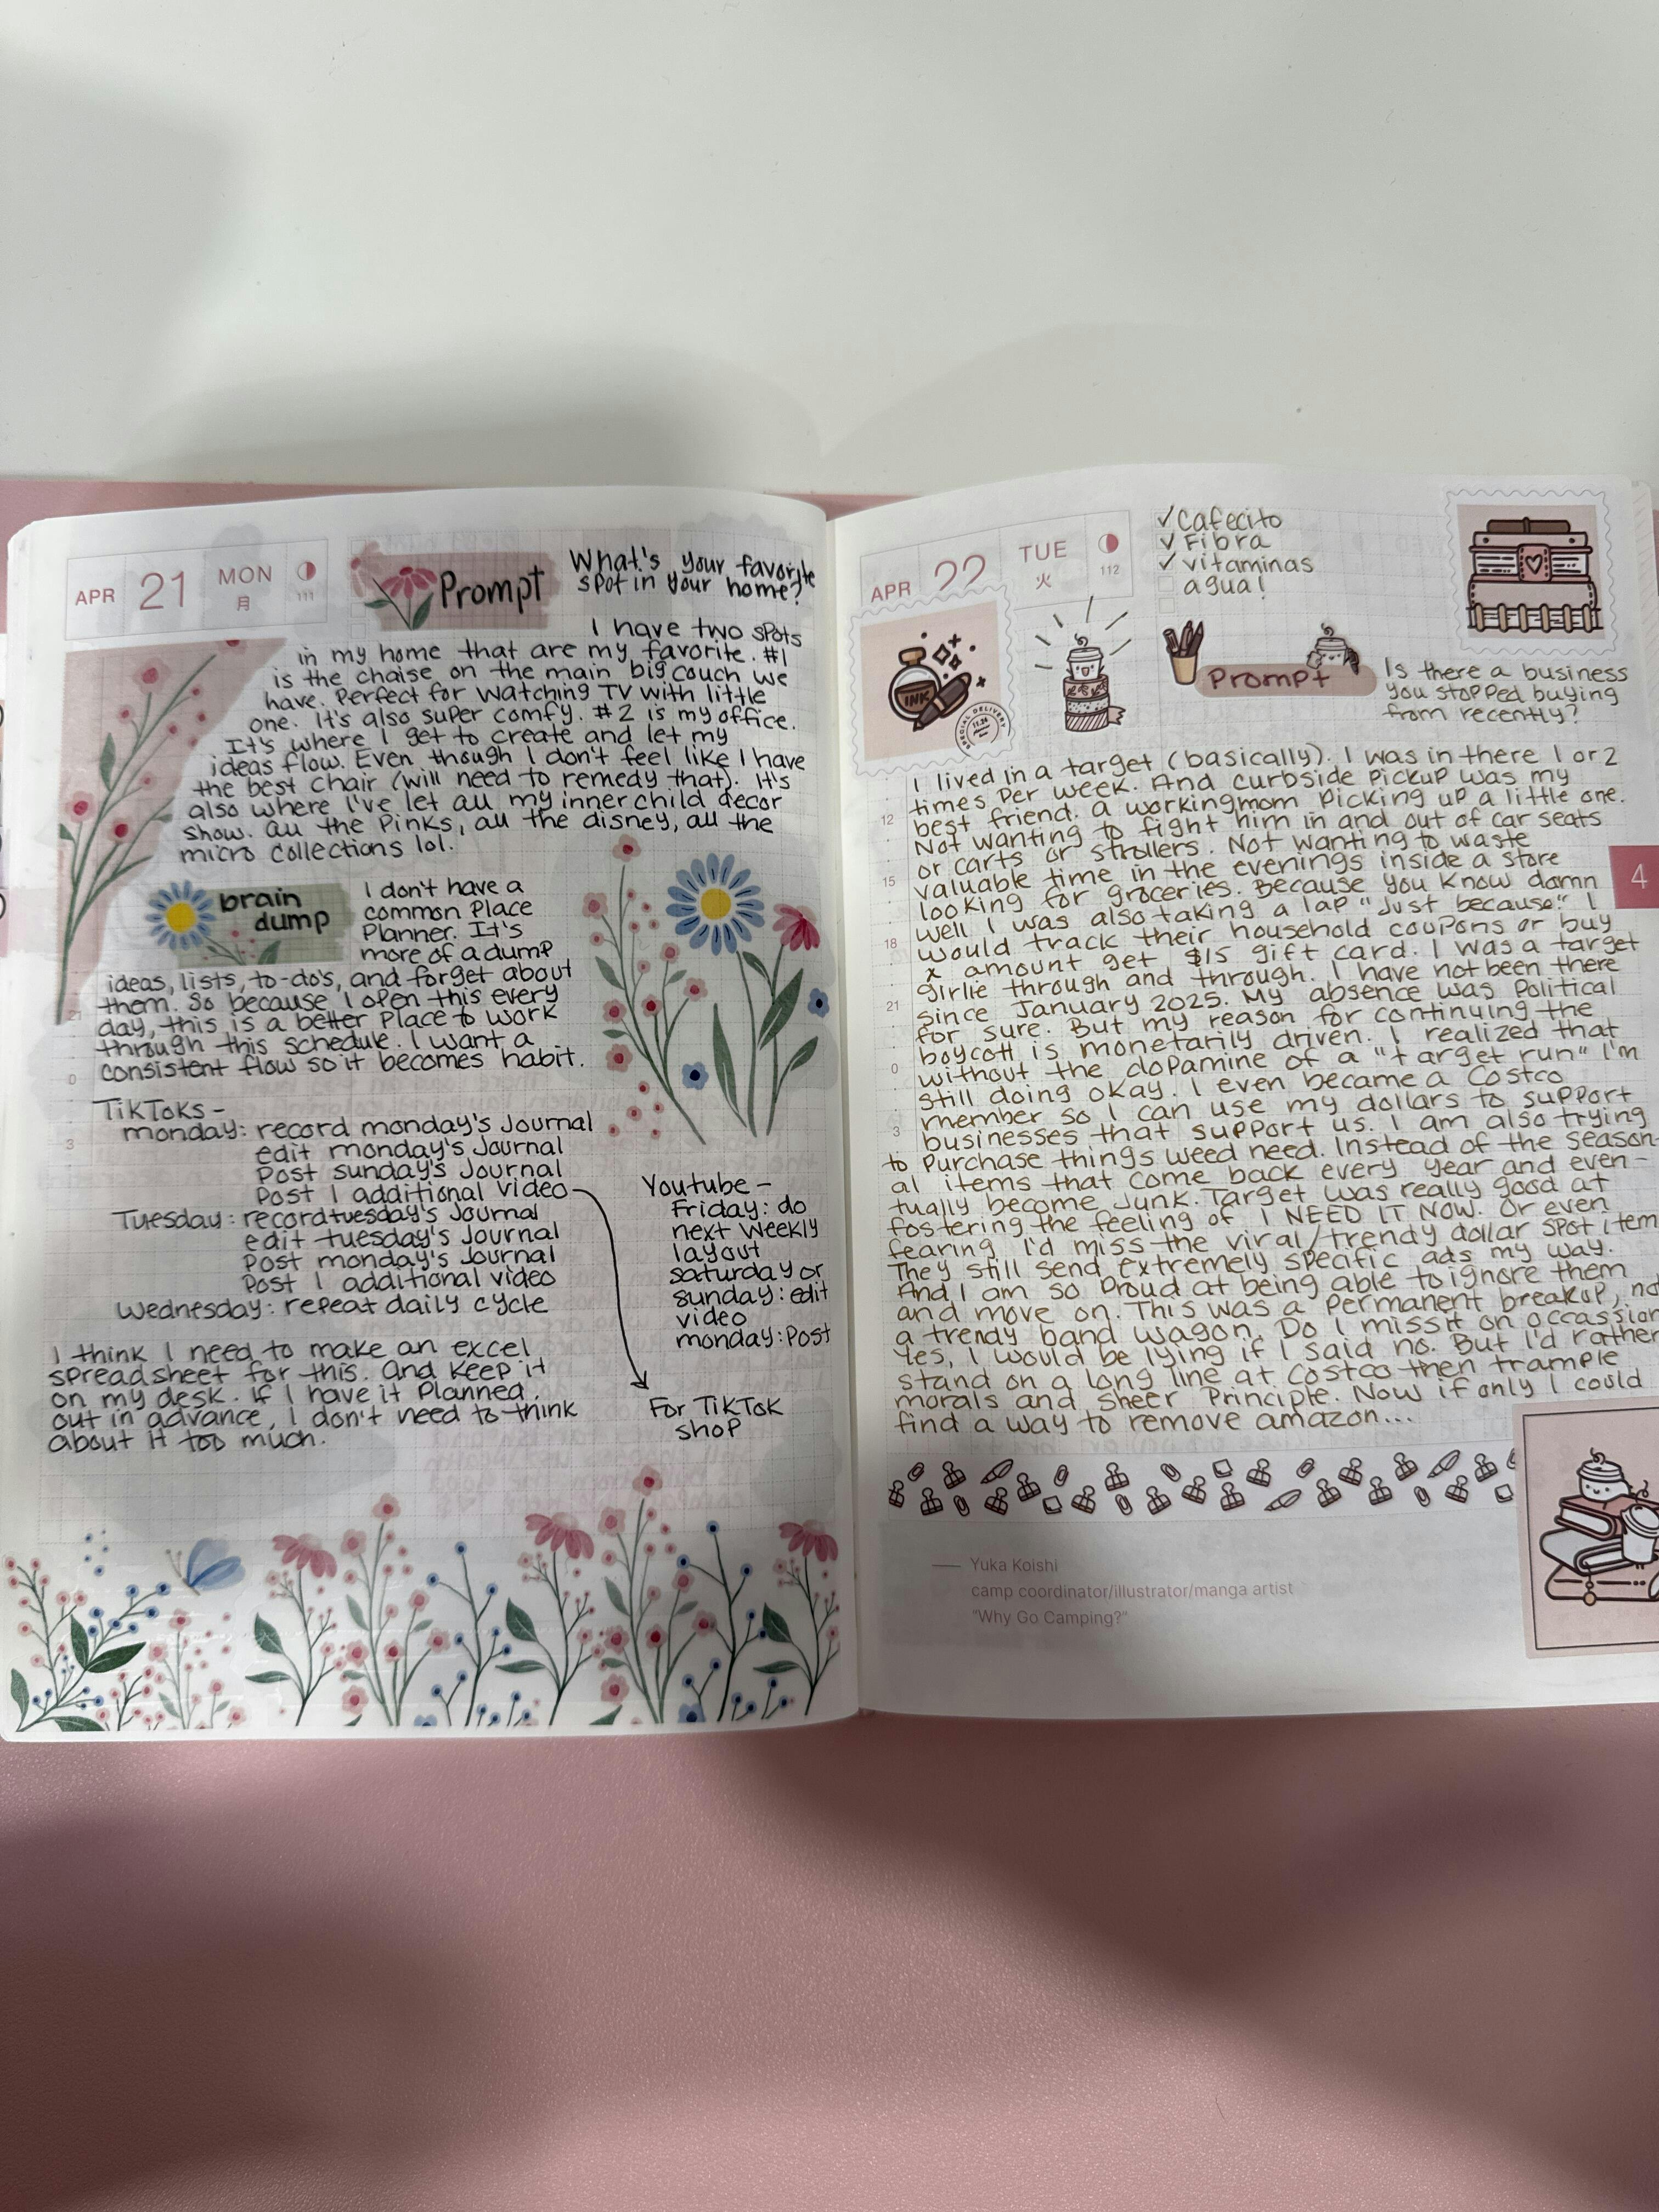 APR 21 MON
月 111
Prompt
What's your favorite
spot in your home?
I have two spots
in my home that are my favorite. #1
is the chaise on the main big couch we
have. Perfect for watching TV with little
one. It's also super comfy. #2 is my office.
It's where I get to create and let my
ideas flow. Even though I don't feel like I have
the best chair (will need to remedy that). It's
also where I've let all my inner child decor
show. All the pinks, all the disney, all the
micro collections lol.
brain
dump
I don't have a
common place
planner. It's
more of a dump
ideas, lists, to-do's, and forget about
them. So because I open this every
day, this is a better place to work
through this schedule. I want a
consistent flow so it becomes habit.
21
0
3
TikToks -
monday: record monday's Journal
edit monday's Journal
Post sunday's Journal
Post 1 additional video
Tuesday: record tuesday's Journal
edit tuesday's Journal
Post monday's Journal
Post 1 additional video
Wednesday: repeat daily cycle
Youtube -
Friday: do
next weekly
layout
saturday or
sunday: edit
video
monday: Post
For TikTok
shop
I think I need to make an excel
spreadsheet for this. And keep it
on my desk. If I have it planned
out in advance, I don't need to think
about it too much.
APR 22 TUE
火 112
✓ Cafecito
✓ Fibra
✓ vitaminas
agua!
INK
SPECIAL DELIVERY
Prompt
Is there a business
you stopped buying
from recently?
I lived in a target (basically). I was in there 1 or 2
times per week. And curbside pickup was my
best friend. A working mom picking up a little one.
Not wanting to fight him in and out of car seats
or carts or strollers. Not wanting to waste
valuable time in the evenings inside a store
looking for groceries. Because you know damn
well I was also taking a lap "just because." I
would track their household coupons or buy
x amount get $15 gift card. I was a target
girlie through and through. I have not been there
since January 2025. My absence was political
for sure. But my reason for continuing the
boycott is monetarily driven. I realized that
without the dopamine of a "target run" I'm
still doing okay. I even became a Costco
member so I can use my dollars to support
businesses that support us. I am also trying
to purchase things weed need. Instead of the season-
al items that come back every year and even-
tually become junk. Target was really good at
fostering the feeling of I NEED IT NOW. Or even
fearing I'd miss the viral/trendy dollar spot item
They still send extremely specific ads my way.
And I am so proud at being able to ignore them
and move on. This was a permanent breakup, not
a trendy band wagon. Do I miss it on occassion
Yes, I would be lying if I said no. But I'd rather
stand on a long line at Costco then trample
morals and sheer principle. Now if only I could
find a way to remove amazon...
12
15
18
21
0
3
4
— Yuka Koishi
camp coordinator/illustrator/manga artist
"Why Go Camping?"